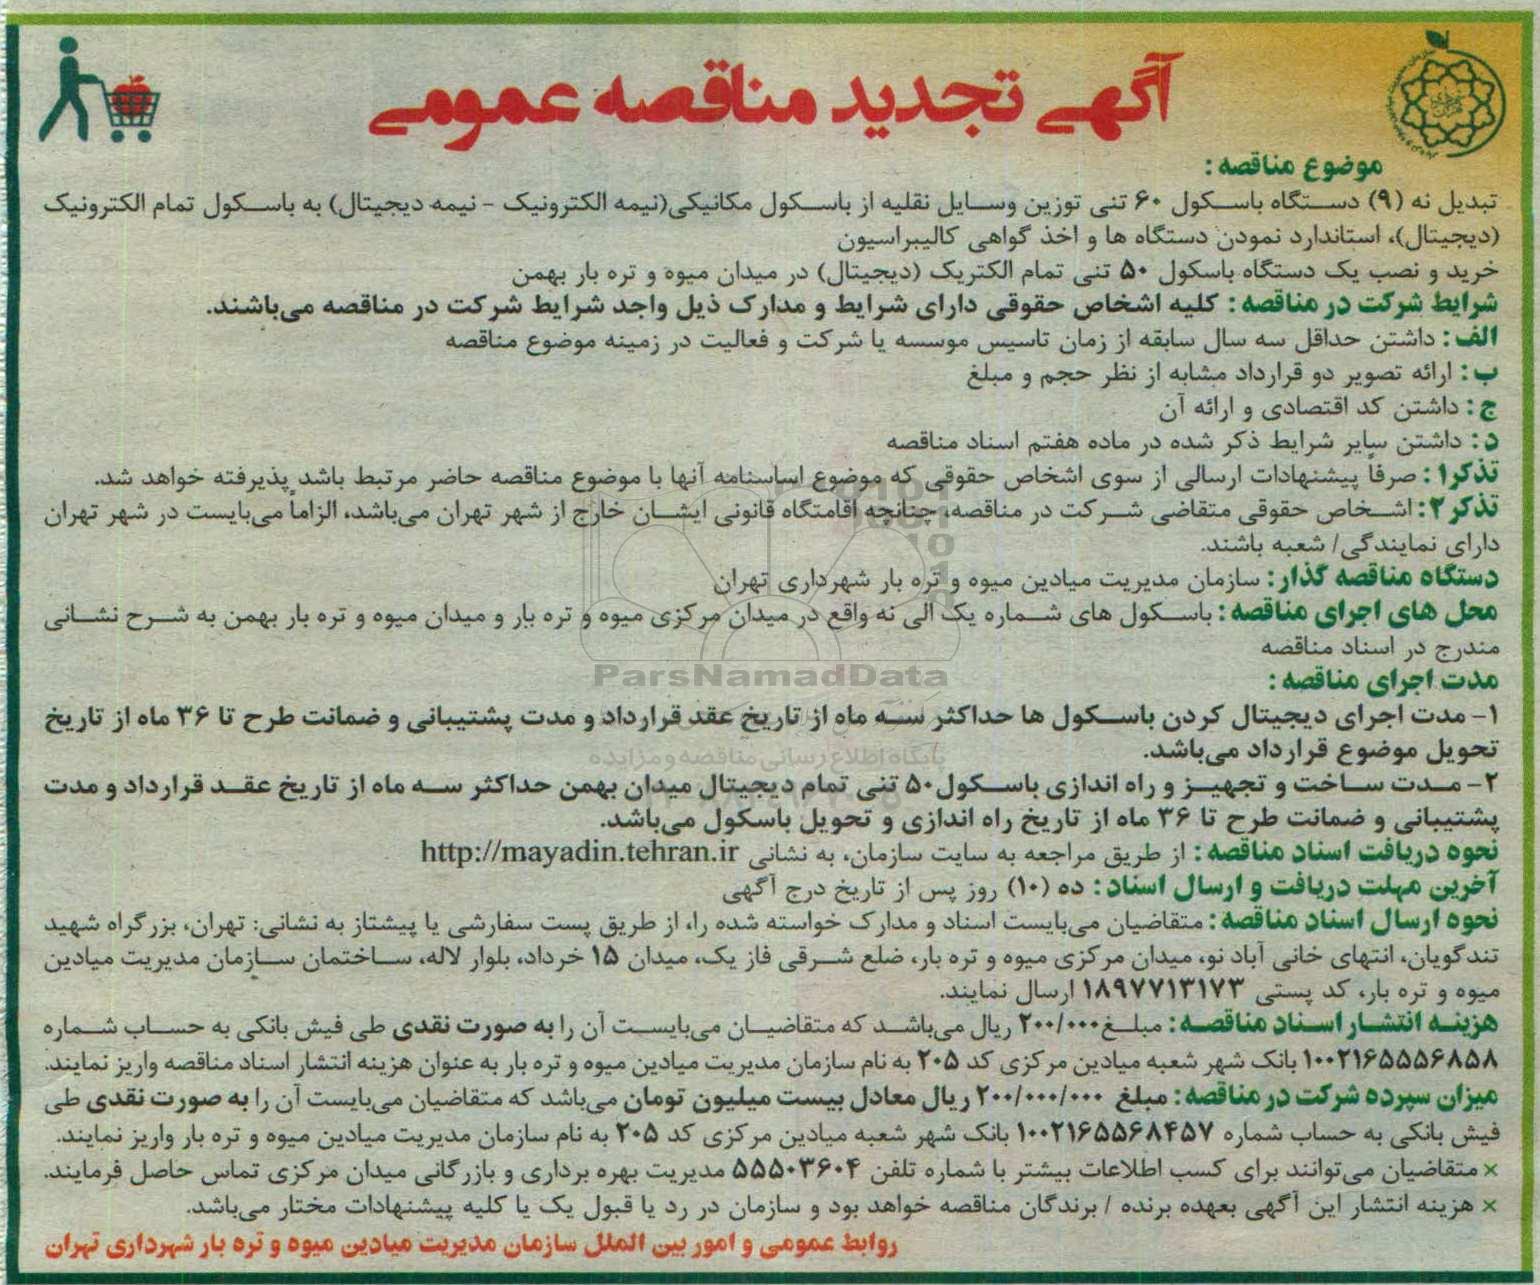 آگهی تجدید مناقصه عمومی
موضوع مناقصه :
تبدیل نه (۹) دستگاه باسکول ۶۰ تنی توزین وسایل نقلیه از باسکول مکانیکی(نیمه الکترونیک - نیمه دیجیتال) به باسکول تمام الکترونیک
(دیجیتال)، استاندارد نمودن دستگاه ها و اخذ گواهی کالیبراسیون
خرید و نصب یک دستگاه باسکول ۵۰ تنی تمام الکتریک (دیجیتال) در میدان میوه و تره بار بهمن
شرایط شرکت در مناقصه : کلیه اشخاص حقوقی دارای شرایط و مدارک ذیل واجد شرایط شرکت در مناقصه می‌باشند.
الف : داشتن حداقل سه سال سابقه از زمان تاسیس موسسه یا شرکت و فعالیت در زمینه موضوع مناقصه
ب : ارائه تصویر دو قرارداد مشابه از نظر حجم و مبلغ
ج : داشتن کد اقتصادی و ارائه آن
د : داشتن سایر شرایط ذکر شده در ماده هفتم اسناد مناقصه
تذکر۱ : صرفاً پیشنهادات ارسالی از سوی اشخاص حقوقی که موضوع اساسنامه آنها با موضوع مناقصه حاضر مرتبط باشد پذیرفته خواهد شد.
تذکر۲ : اشخاص حقوقی متقاضی شرکت در مناقصه، چنانچه اقامتگاه قانونی ایشان خارج از شهر تهران می‌باشد، الزاماً می‌بایست در شهر تهران
دارای نمایندگی/ شعبه باشند.
دستگاه مناقصه گذار : سازمان مدیریت میادین میوه و تره بار شهرداری تهران
محل های اجرای مناقصه : باسکول های شماره یک الی نه واقع در میدان مرکزی میوه و تره بار و میدان میوه و تره بار بهمن به شرح نشانی
مندرج در اسناد مناقصه
ParsNamadData
مدت اجرای مناقصه :
۱- مدت اجرای دیجیتال کردن باسکول ها حداکثر سه ماه از تاریخ عقد قرارداد و مدت پشتیبانی و ضمانت طرح تا ۳۶ ماه از تاریخ
تحویل موضوع قرارداد می‌باشد.
پایگاه اطلاع رسانی مناقصه و مزایده
۲- مدت ساخت و تجهیز و راه اندازی باسکول۵۰ تنی تمام دیجیتال میدان بهمن حداکثر سه ماه از تاریخ عقد قرارداد و مدت
پشتیبانی و ضمانت طرح تا ۳۶ ماه از تاریخ راه اندازی و تحویل باسکول می‌باشد.
نحوه دریافت اسناد مناقصه : از طریق مراجعه به سایت سازمان، به نشانی http://mayadin.tehran.ir
آخرین مهلت دریافت و ارسال اسناد : ده (۱۰) روز پس از تاریخ درج آگهی
نحوه ارسال اسناد مناقصه : متقاضیان می‌بایست اسناد و مدارک خواسته شده را، از طریق پست سفارشی یا پیشتاز به نشانی: تهران، بزرگراه شهید
تندگویان، انتهای خانی آباد نو، میدان مرکزی میوه و تره بار، ضلع شرقی فاز یک، میدان ۱۵ خرداد، بلوار لاله، ساختمان سازمان مدیریت میادین
میوه و تره بار، کد پستی ۱۸۹۷۷۱۳۱۷۳ ارسال نمایند.
هزینه انتشار اسناد مناقصه : مبلغ ۲۰۰/۰۰۰ ریال می‌باشد که متقاضیان می‌بایست آن را به صورت نقدی طی فیش بانکی به حساب شماره
۱۰۰۲۱۶۵۵۵۶۸۵۸ بانک شهر شعبه میادین مرکزی کد ۲۰۵ به نام سازمان مدیریت میادین میوه و تره بار به عنوان هزینه انتشار اسناد مناقصه واریز نمایند.
میزان سپرده شرکت در مناقصه : مبلغ ۲۰۰/۰۰۰/۰۰۰ ریال معادل بیست میلیون تومان می‌باشد که متقاضیان می‌بایست آن را به صورت نقدی طی
فیش بانکی به حساب شماره ۱۰۰۲۱۶۵۵۶۸۴۵۷ بانک شهر شعبه میادین مرکزی کد ۲۰۵ به نام سازمان مدیریت میادین میوه و تره بار واریز نمایند.
× متقاضیان می‌توانند برای کسب اطلاعات بیشتر با شماره تلفن ۵۵۵۰۳۶۰۴ مدیریت بهره برداری و بازرگانی میدان مرکزی تماس حاصل فرمایند.
× هزینه انتشار این آگهی بعهده برنده / برندگان مناقصه خواهد بود و سازمان در رد یا قبول یک یا کلیه پیشنهادات مختار می‌باشد.
روابط عمومی و امور بین الملل سازمان مدیریت میادین میوه و تره بار شهرداری تهران